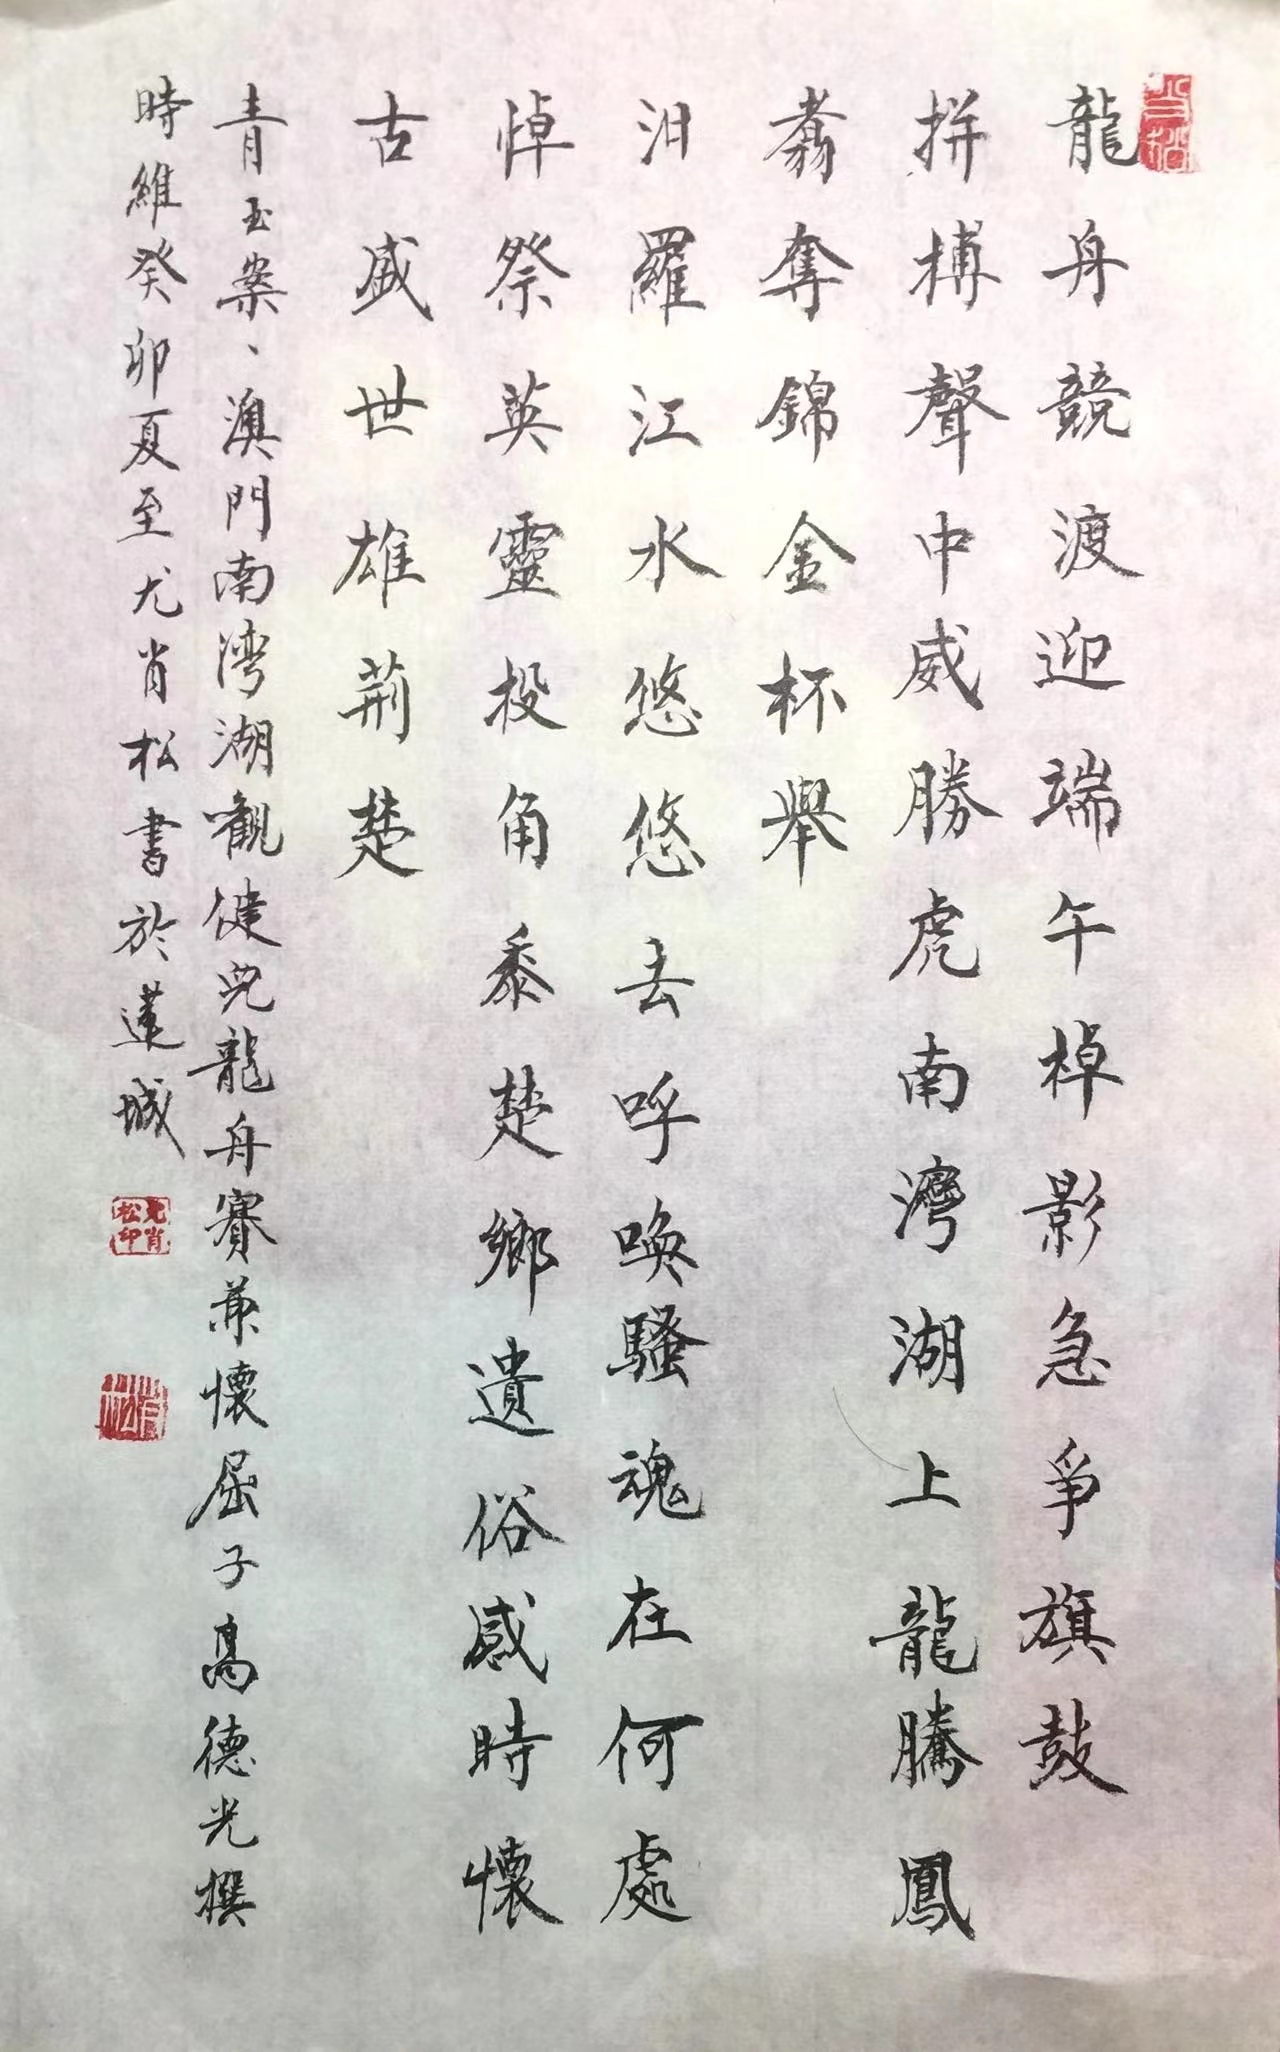 龍舟競渡迎端午棹影急爭旗鼓
拼搏聲中威勝虎南灣湖上龍騰鳳
翥奪錦金杯舉
汨羅江水悠悠去呼喚騷魂在何處
悼祭英靈投角黍楚鄉遺俗感時懷
古盛世雄荊楚
青玉案、澳門南湾湖觀健兒龍舟賽兼懷屈子高德光撰
時維癸卯夏至尤肖松書於蓮城
尤肖松印